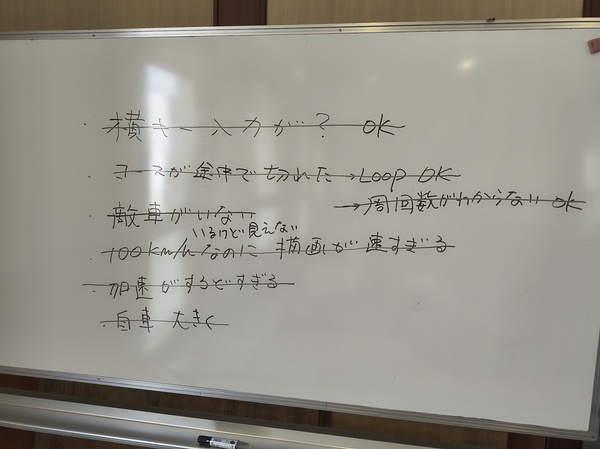 ・横キー入力が? OK
・コースが途中で切れた→LOOP OK
→周回数がわからない OK
・敵車がいない
いるけど見えない
・100km/hなのに描画が速すぎる
・加速がするどすぎる
・自車 大きく